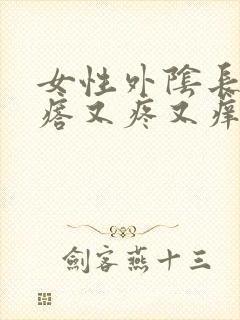 女性外陰長
痞又疼又痒
劍客燕十三